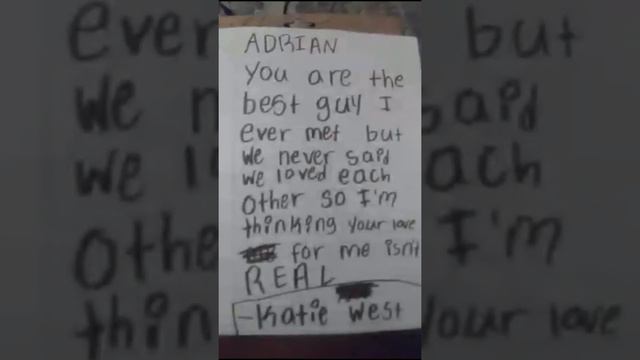 ADRIAN
You are the
best guy I
ever met but
We never said
we loved each
other so I'm
thinking your love
for me isn't
REAL
-Katie West